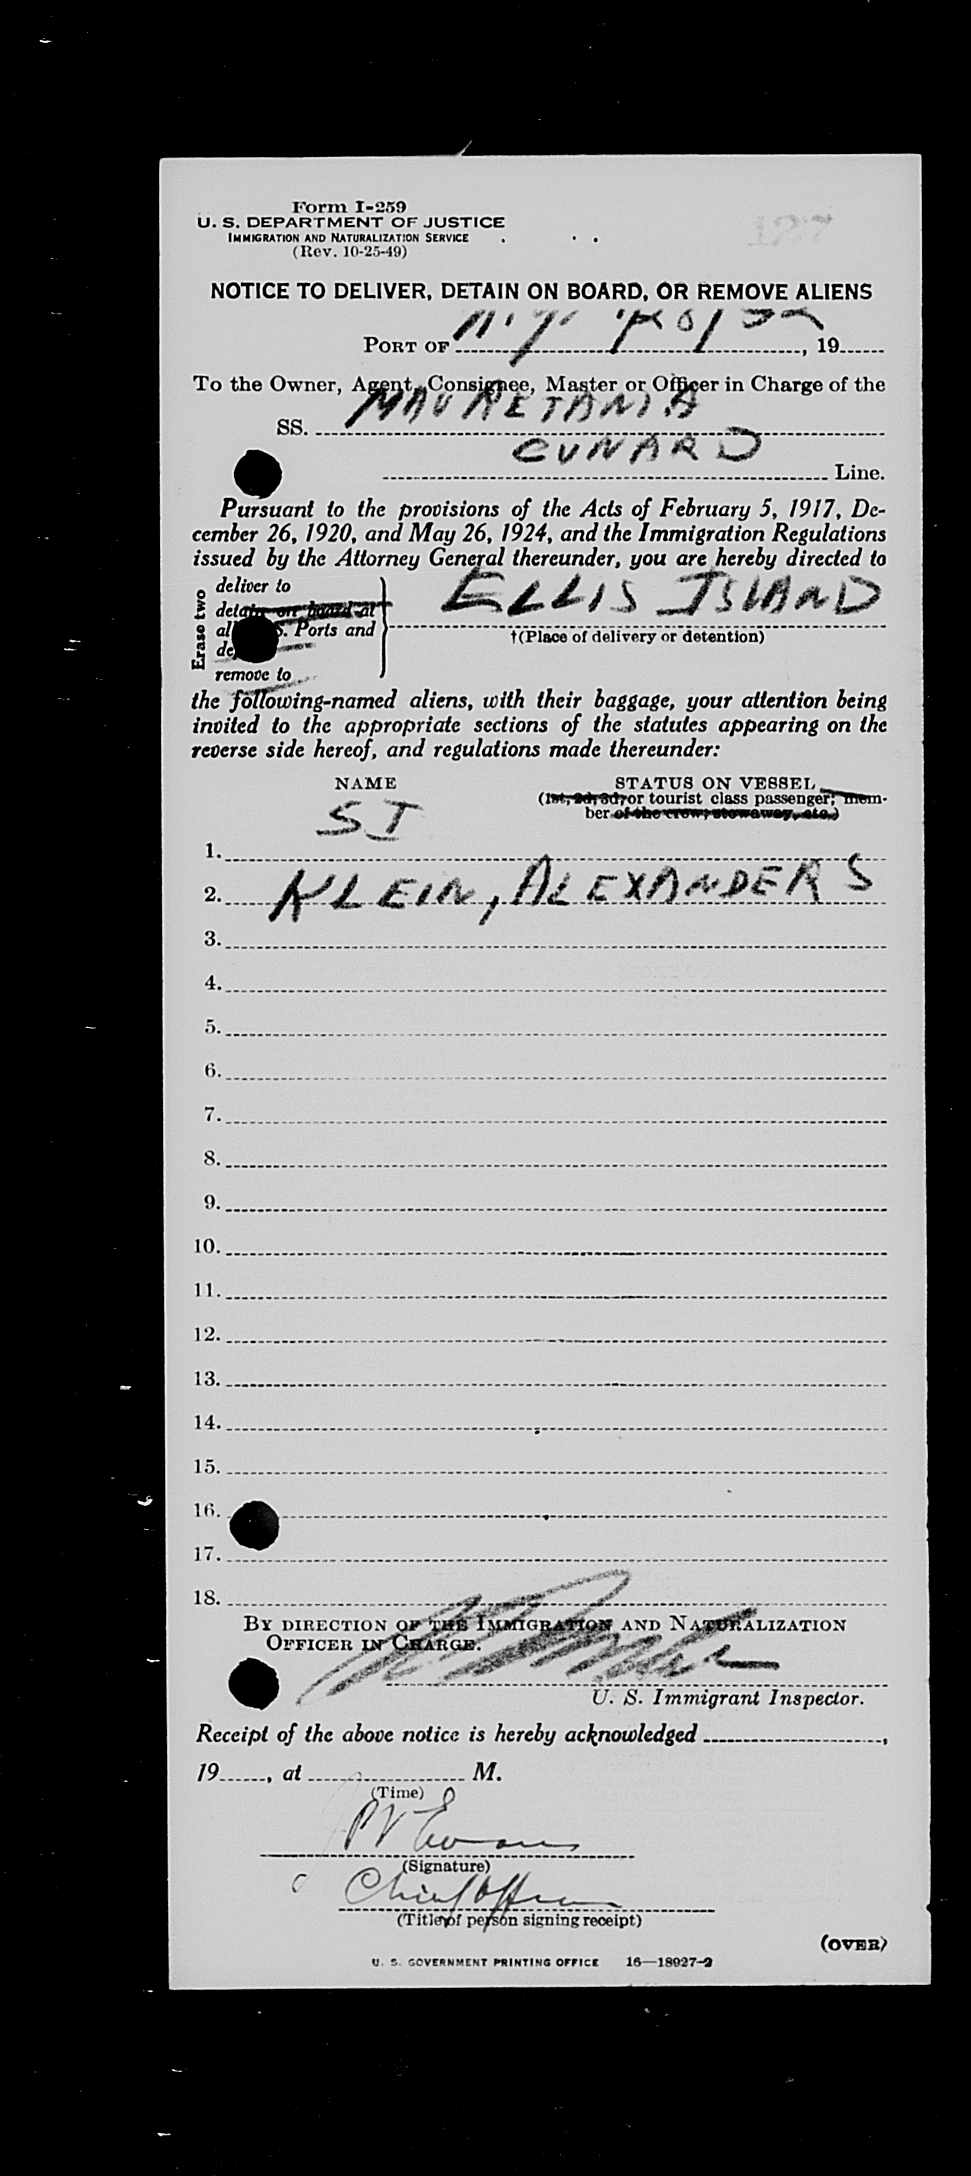 Form I-259
U. S. DEPARTMENT OF JUSTICE
IMMIGRATION AND NATURALIZATION SERVICE
(Rev. 10-25-49)
NOTICE TO DELIVER, DETAIN ON BOARD, OR REMOVE ALIENS
PORT OF N.Y. , 19
To the Owner, Agent, Consignee, Master or Officer in Charge of the
SS. MAURETANIA
CUNARD Line.
Pursuant to the provisions of the Acts of February 5, 1917, De-
cember 26, 1920, and May 26, 1924, and the Immigration Regulations
issued by the Attorney General thereunder, you are hereby directed to
Erase two
deliver to
detain on board at
al S. Ports and
de
remove to
ELLIS ISLAND
†(Place of delivery or detention)
the following-named aliens, with their baggage, your attention being
invited to the appropriate sections of the statutes appearing on the
reverse side hereof, and regulations made thereunder:
NAME STATUS ON VESSEL
(1st, 2d, 3d, or tourist class passenger; mem-
ber of the crew; stowaway, etc.)
SI
1.
2. KLEIN, ALEXANDER S
3.
4.
5.
6.
7.
8.
9.
10.
11.
12.
13.
14.
15.
16.
17.
18.
BY DIRECTION OF THE IMMIGRATION AND NATURALIZATION
OFFICER IN CHARGE.
U. S. Immigrant Inspector.
Receipt of the above notice is hereby acknowledged ,
19 , at M.
(Time)
Evans
(Signature)
Chief Officer
(Title of person signing receipt)
(OVER)
U. S. GOVERNMENT PRINTING OFFICE 16—18927-2